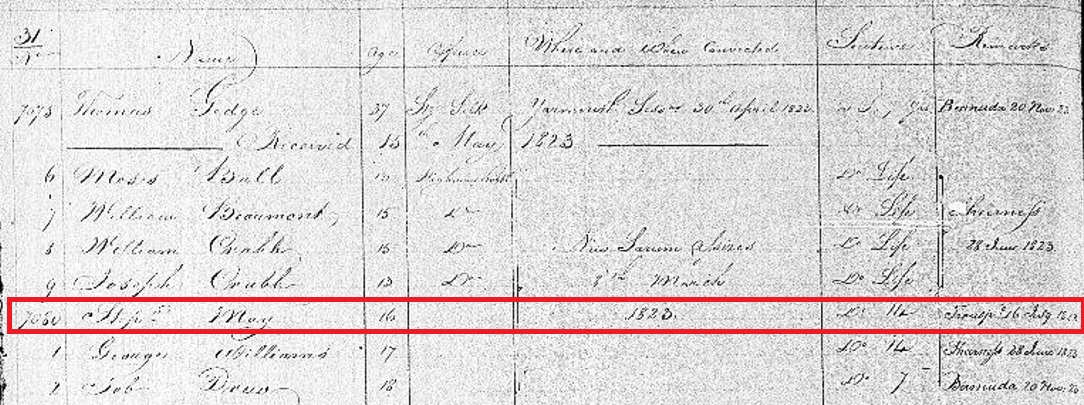 31
Names Age Offence Where and When Convicted Sentence Remarks
7075 Thomas Gedge 37 Stg Silk Yarmouth Sess 30th April 1823 7 Yrs Bermuda 20 Nov 23
Received 15th May 1823
6 Moses Bull Do Life
7 William Beaumont 15 Do Do Life Sheerness
8 William Crabb 15 Do New Sarum Assizes Do Life 28 June 1823
9 Joseph Crabb 13 Do 8th March Do Life
7080 Stepn May 16 1823. Do 14 Transpd 16 July
1 George Williams 17 Do 14 Sheerness 28 June 1823
2 Job 18 Do 7 Bermuda 20 Nov 23